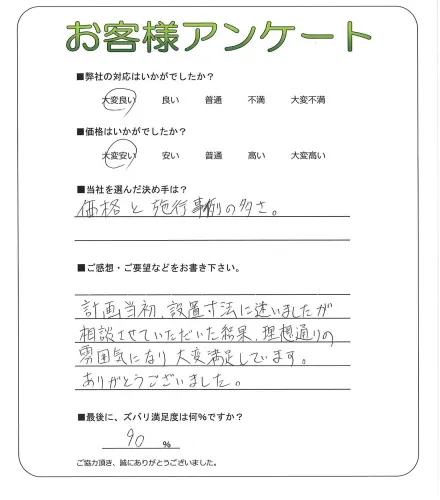 お客様アンケート
■弊社の対応はいかがでしたか？
大変良い 良い 普通 不満 大変不満
■価格はいかがでしたか？
大変安い 安い 普通 高い 大変高い
■当社を選んだ決め手は？
価格と施行事例の多さ。
■ご感想・ご要望などをお書き下さい。
計画当初、設置寸法に迷いましたが
相談させていただいた結果、理想通りの
雰囲気になり大変満足しています。
ありがとうございました。
■最後に、ズバリ満足度は何％ですか？
90 %
ご協力頂き、誠にありがとうございました。